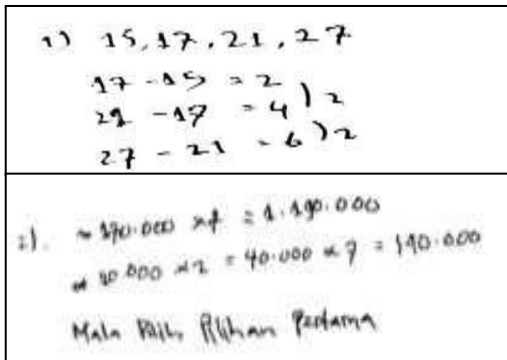 1) 15, 17, 21, 27
17 - 15 = 2
21 - 17 = 4 ) 2
27 - 21 = 6 ) 2
2). 170.000 x 7 = 1.190.000
20.000 x 2 = 40.000 x 7 = 140.000
Maka Pilih Pilihan Pertama